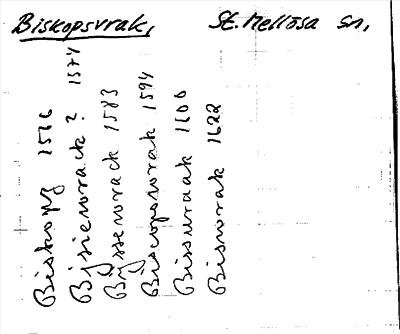 Biskopsvrak, St. Mellösa sn,
Biskopz 1566
Bijsienorack? 1574
Byssenorack 1583
Biscopsvorak 1594
Bissuraak 1600
Bisnorak 1622